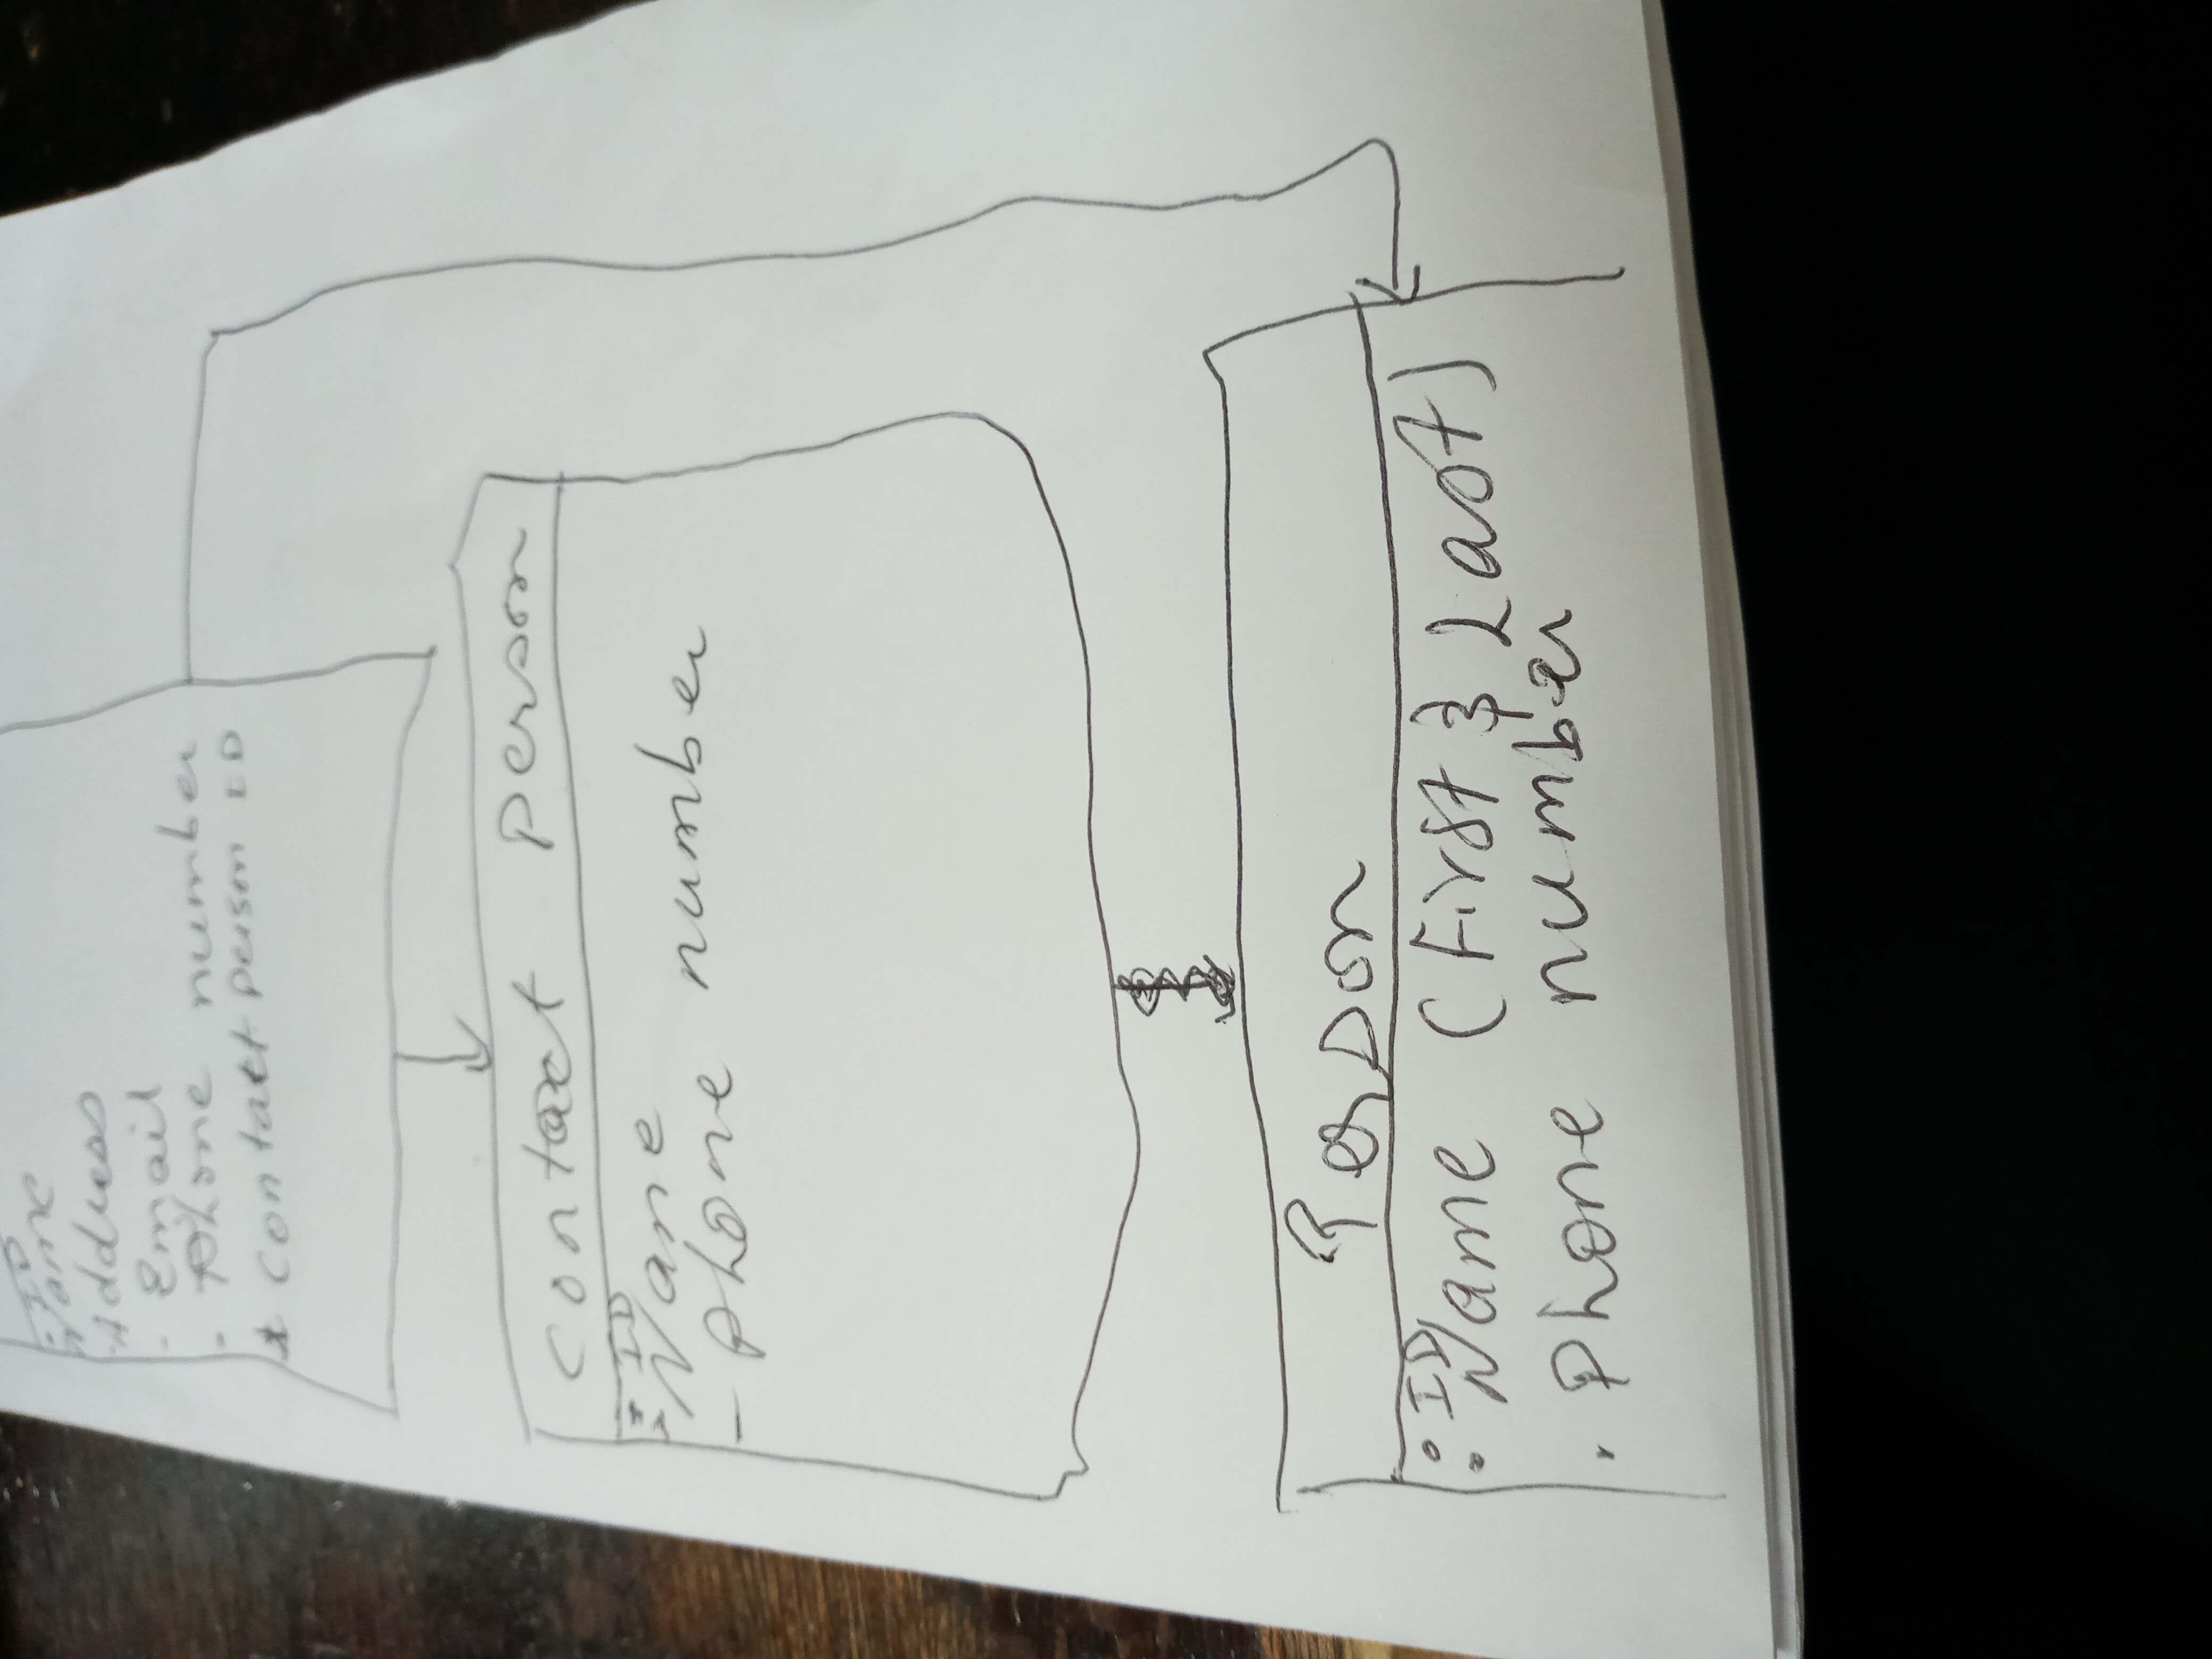 • ID
Name
- Address
- Email
- Phone number
* Contact person ID
Contact person
- ID
- Name
- Phone number
Person
• ID
• Name (First & Last)
. Phone number